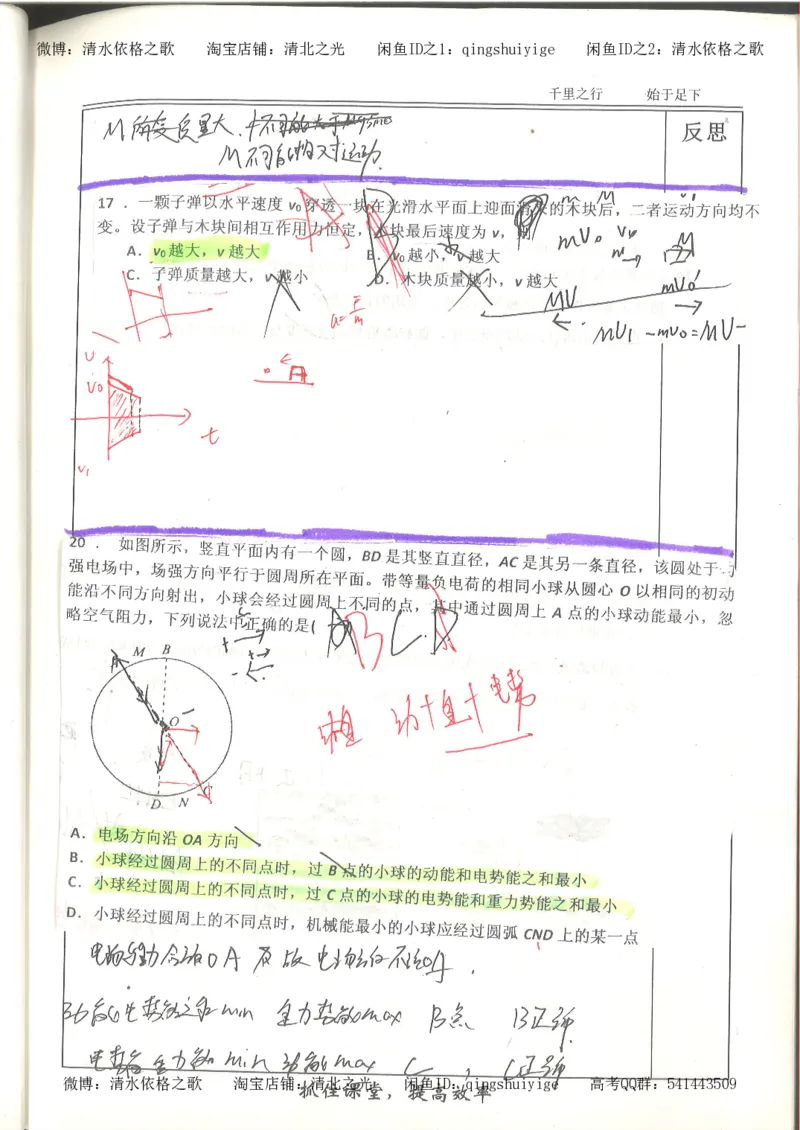 微博：清水依格之歌 淘宝店铺：清北之光 闲鱼ID之1：qingshuiyige 闲鱼ID之2：清水依格之歌
千里之行 始于足下
反思
M不可能相对运动
17 ．一颗子弹以水平速度 v₀ 穿透一块在光滑水平面上迎面滑来的木块后，二者运动方向均不
变。设子弹与木块间相互作用力恒定，木块最后速度为 v，则
A．v₀越大，v 越大 B．v₀越小，v 越大
C．子弹质量越大，v 越小 D．木块质量越小，v 越大
mV₀
M
mV₀'
MV
a=F/m
MV₁ -mv₀=MV-
v
V₀
t
V₁
20 ． 如图所示，竖直平面内有一个圆，BD 是其竖直直径，AC 是其另一条直径，该圆处于匀
强电场中，场强方向平行于圆周所在平面。带等量负电荷的相同小球从圆心 O 以相同的初动
能沿不同方向射出，小球会经过圆周上不同的点，其中通过圆周上 A 点的小球动能最小，忽
略空气阻力，下列说法中正确的是(
B C D
A M B
O
D N C
A．电场方向沿 OA 方向
B．小球经过圆周上的不同点时，过 B 点的小球的动能和电势能之和最小
C．小球经过圆周上的不同点时，过 C 点的小球的电势能和重力势能之和最小
D．小球经过圆周上的不同点时，机械能最小的小球应经过圆弧 CND 上的某一点
min 重力势能max B点 B正确
电势能 重力能 min 动能max C , C正确
微博：清水依格之歌 淘宝店铺：清北之光 闲鱼ID：qingshuiyige 高考QQ群：541443509
抓住课堂，提高效率